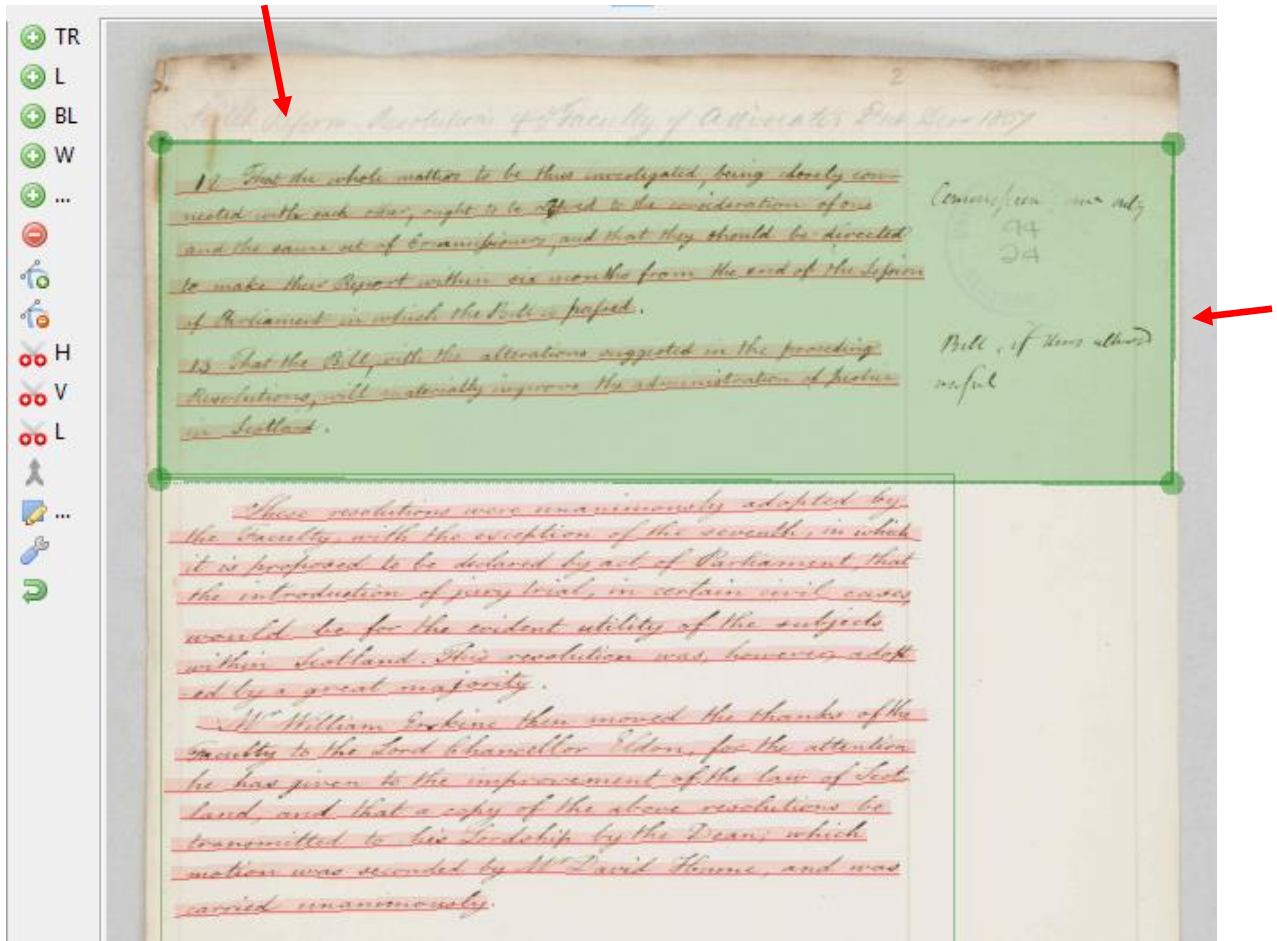 TR
L
BL
W
...
H
V
L
...
2
Reform Resolutions of Faculty of Advocates
12 That the whole matters to be thus investigated, being closely con-
nected with each other, ought to be referred to the consideration of one
and the same set of Commissioners, and that they should be directed
to make their Report within six months from the end of the Session
of Parliament in which the Bill is passed.
13 That the Bill, with the alterations suggested in the preceding
Resolutions, will materially improve the administration of justice
in Scotland.
Commission one only
94
24
Bill, if thus altered
useful
These resolutions were unanimously adopted by
the Faculty, with the exception of the seventh, in which
it is proposed to be declared by act of Parliament, that
the introduction of jury trial, in certain civil cases,
would be for the evident utility of the subjects
within Scotland. This resolution was, however, adopt
-ed by a great majority.
Mr William Erskine then moved the thanks of the
Faculty to the Lord Chancellor Eldon, for the attention
he has given to the improvement of the law of Scot
land, and that a copy of the above resolutions be
transmitted to his Lordship by the Dean; which
motion was seconded by Mr David Hume, and was
carried unanimously.